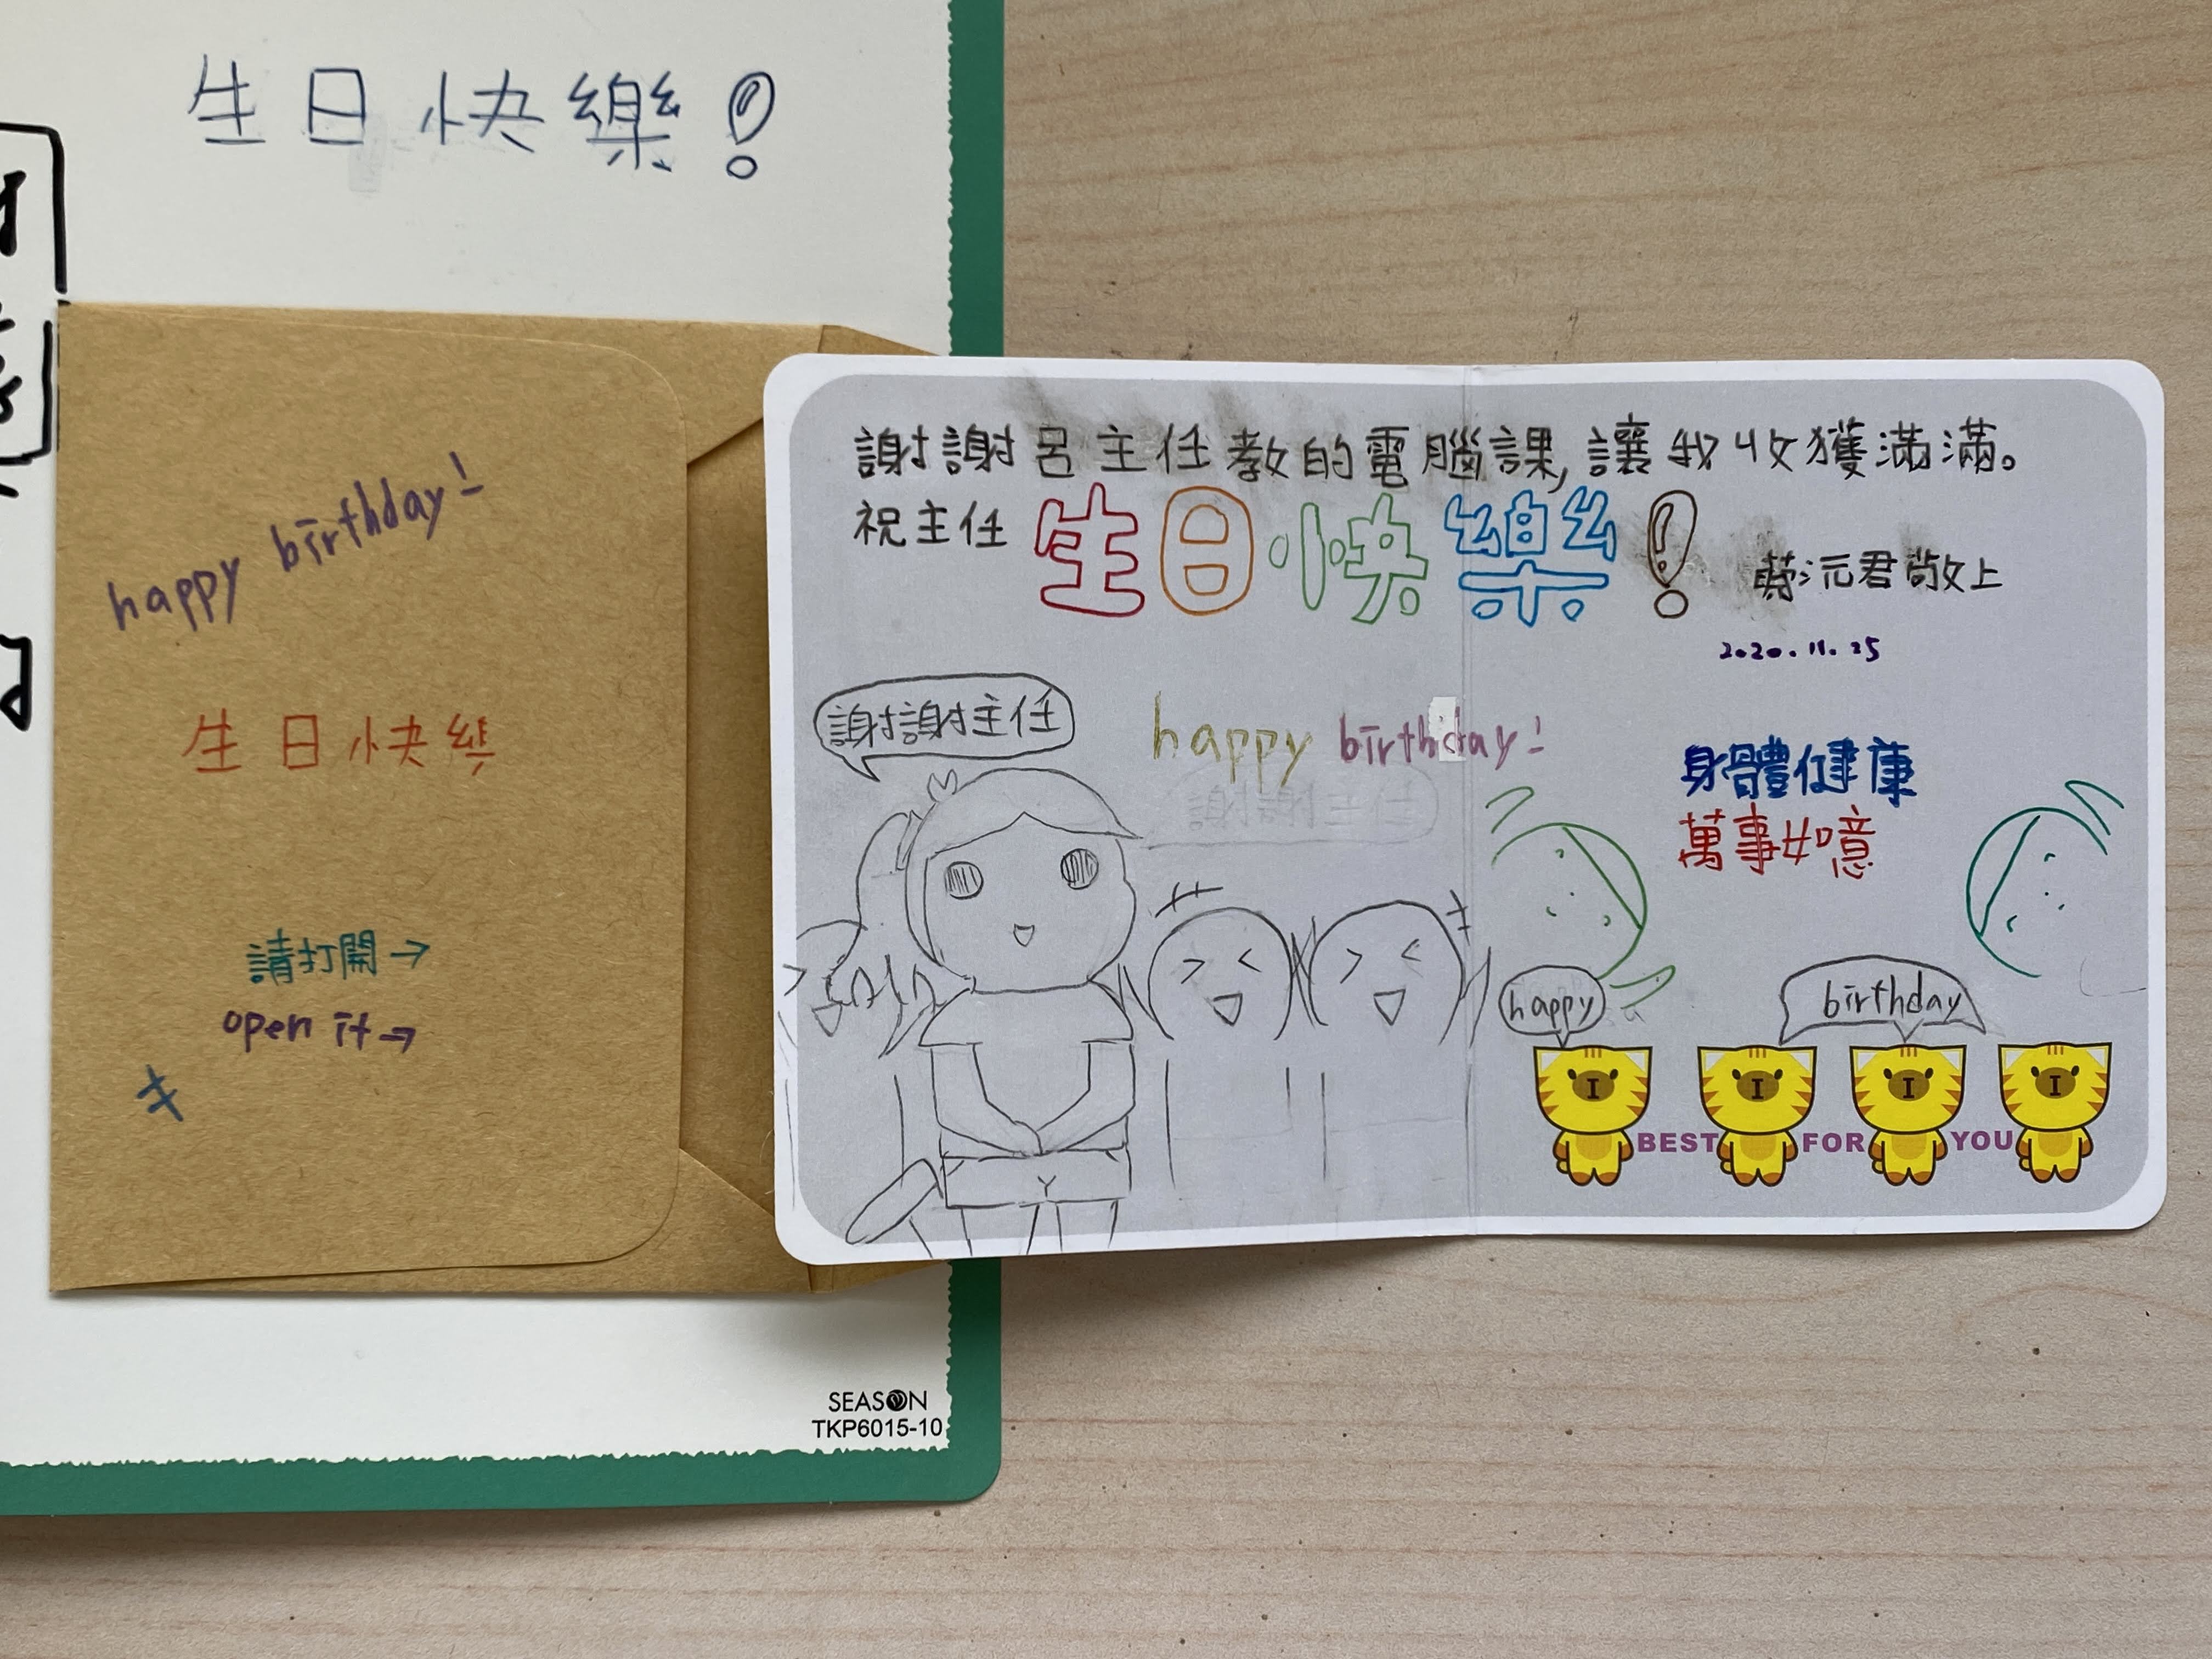 生日快樂！
happy birthday!
生日快樂
請打開→
open it→
謝謝呂主任教的電腦課,讓我收獲滿滿。
祝主任生日快樂！
沅君敬上
2020.11.25
謝謝主任
happy birthday!
身體健康
萬事如意
happy
birthday
BEST FOR YOU
SEASON
TKP6015-10